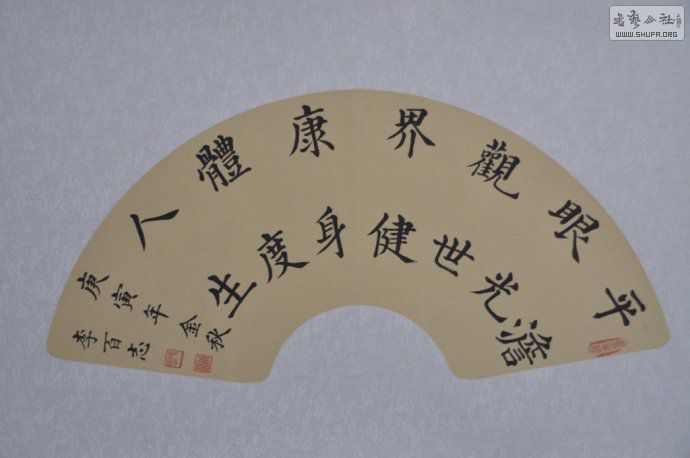 平澹
眼光
觀世
界健
康身
體度
人生
庚寅年金秋
李百志
書藝公社
WWW.SHUFA.ORG